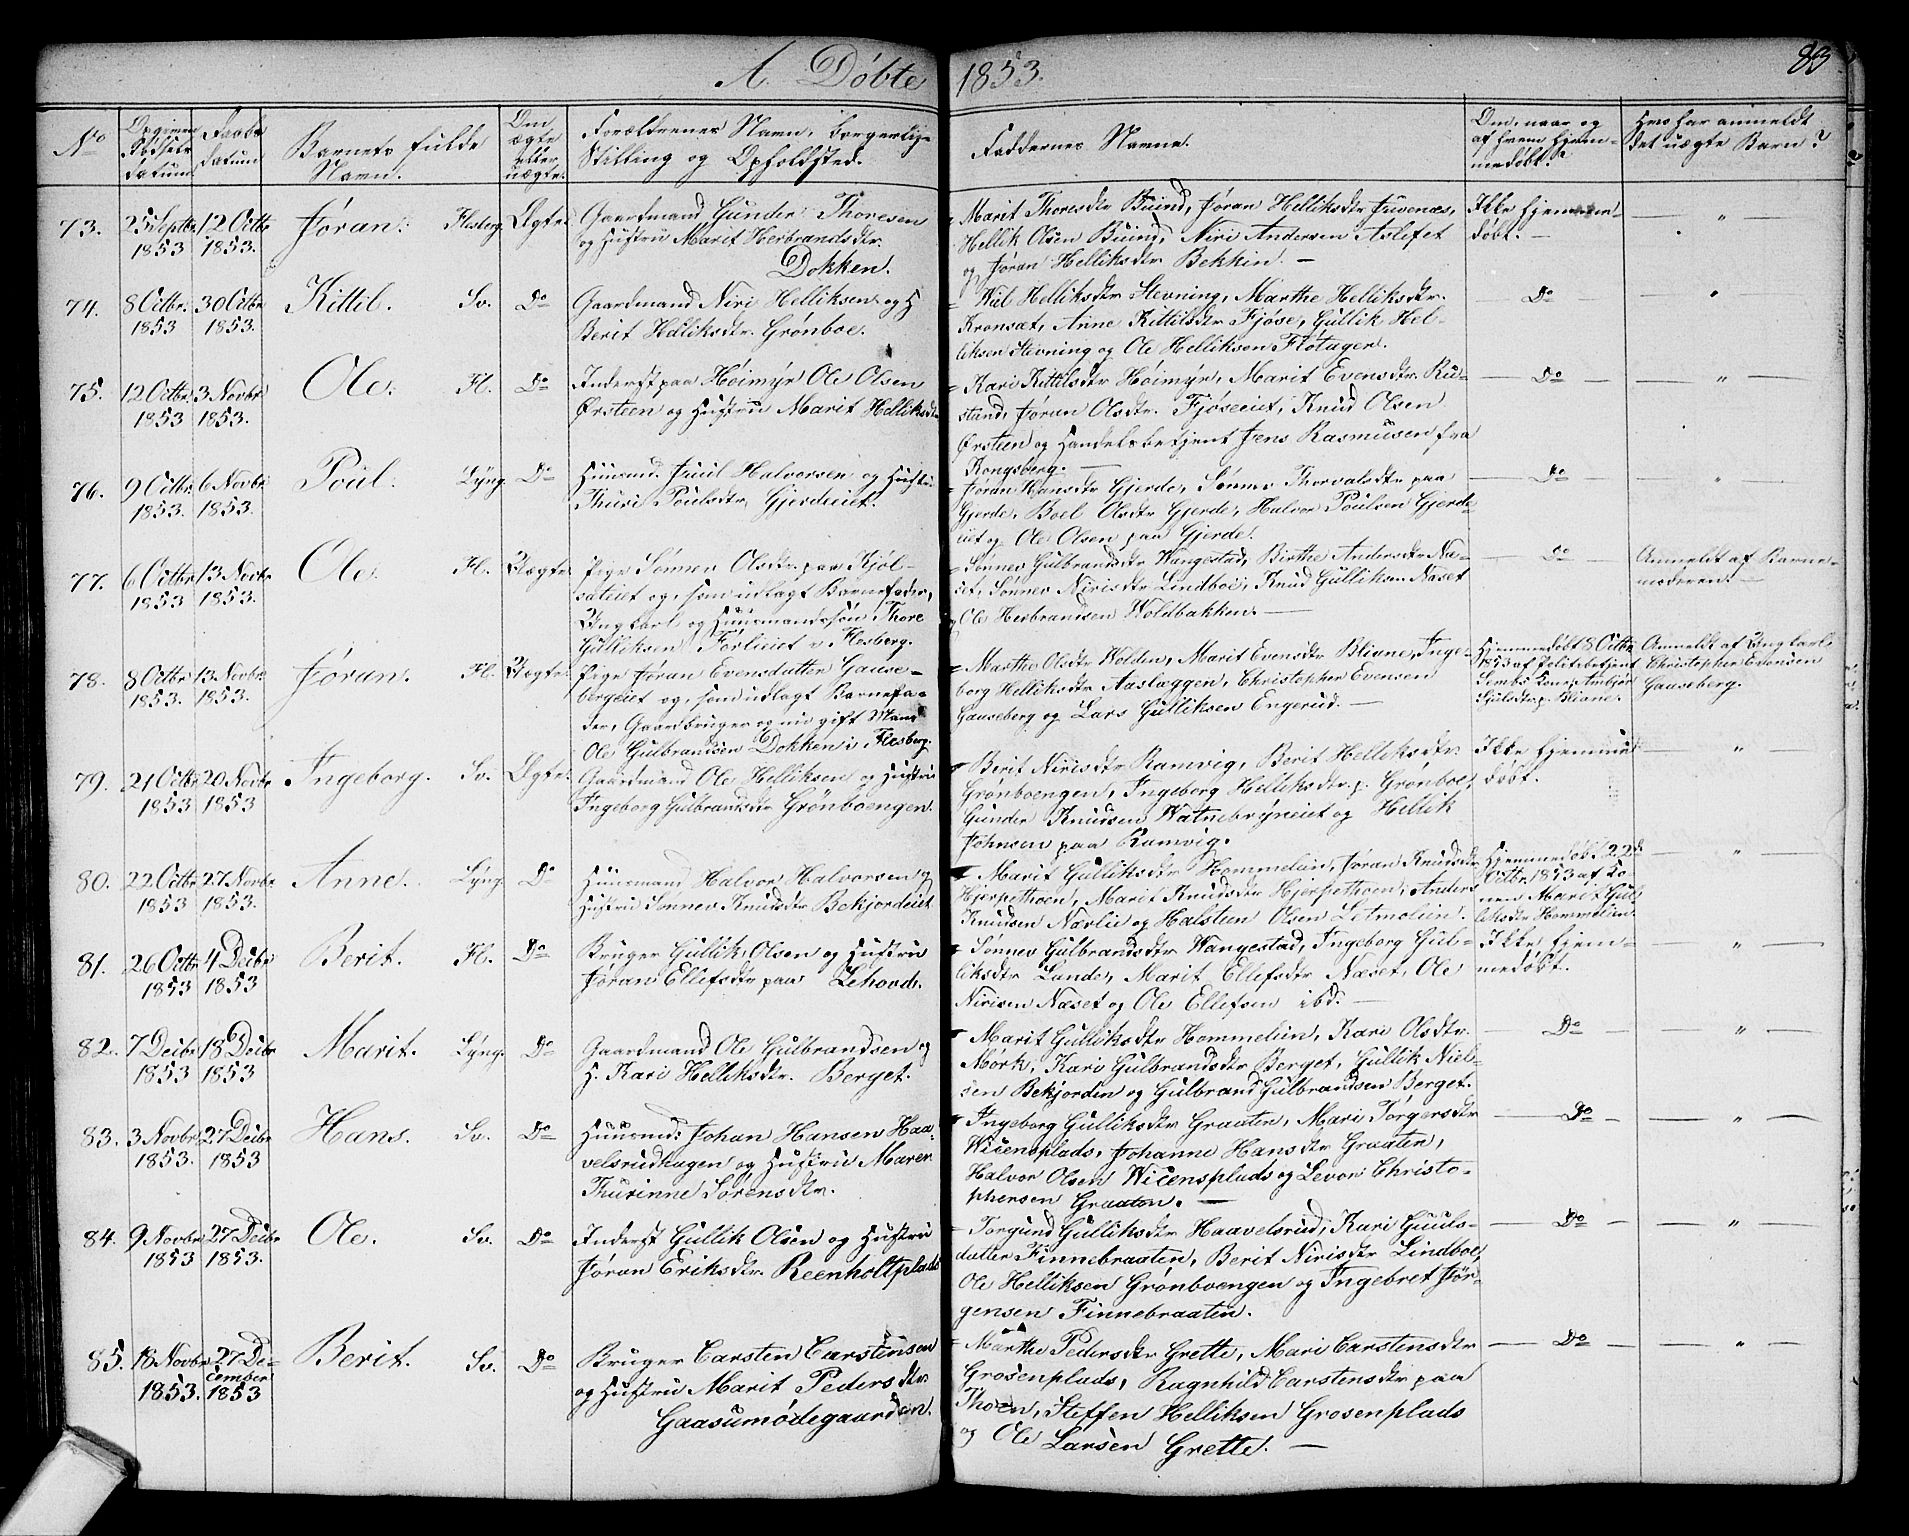 A. Døbte 1853. 83
No
Opgiven Fødsels datum
Daabs datum
Barnets fulde Navn.
Om ægte eller uægte.
Forældrenes Navn, borgerlige Stilling og Opholdsted.
Faddernes Navne.
Om, naar og af hvem hjemmedøbt?
Hvo har anmeldt det uægte Barn?
73. 25 Septbr 1853 12 Octbr 1853. Jøran. Flesberg. Ægte.
Gaardmand Gunder Thoresen
og Hustru Marit Herbrandsdtr.
Dokken.
Marit Thoresdtr Buind, Jøran Helliksdtr Juvenæs,
Hellik Olsen Buind, Niri Andersen Aslefet
og Jøran Helliksdtr Bekkin. —
Ikke hjemmedøbt. —
— " —
74. 8 Octbr. 1853 30 Octbr 1853. Kittil. Sv. Do
Gaardmand Niri Helliksen og H
Berit Helliksdtr. Grønboe.
Helliksdtr Stevning, Marthe Helliksdtr.
Kronsæt, Anne Kittilsdtr Fjøse, Gullik Hel-
liksen Stevning og Ole Helliksen Flotager.
— Do
— "
75. 12 Octbr 1853 3 Novbr 1853. Ole. Fl. Do
Inderst paa Høimyr Ole Olsen
Ørsteen og Hustru Marit Helliksdtr
Kari Kittilsdtr Høimyr, Marit Evensdtr. Ru-
stand, Jøran Olsdtr. Fjøseeiet, Knud Olsen
Ørsteen og Handelsbetjent Jens Rasmusen fra
Kongsberg. —
— Do —
— " —
76. 9 Octbr. 1853. 6 Novbr. 1853. Poul. Lyng. Do
Huusmd. Juul Halvorsen og Hustru
Thuri Poulsdtr. Gjerdeiet.
Jøran Hansdtr Gjerde, Sønnev Thorvalsdtr paa
Gjerde, Boel Olsdtr Gjerde, Halvor Poulsen Gjerde-
eiet og Ole Olsen paa Gjerde.
— Do —
— " —
77. 6 Octbr 1853 13 Novbr 1853. Ole. Fl. Uægte.
Pige Sønnev Olsdtr. paa Kjøl-
sateiet og, som udlagt Barnefader,
Ungkarl og Huusmandssøn Thore
Gulliksen Førlieiet i Flesberg.
Sønnev Gulbrandsdtr Wangestad, Birthe Andersdtr Næ-
set, Sønnev Nirisdtr Lindboe, Knud Gulliksen Næset
og Ole Herbrandsen Woldbakken. —
— Do
Anmeldt af Barne-
moderen. —
78. 8 Octbr 1853. 13 Novbr. 1853. Jøran. Fl. Uægte.
Pige Jøran Evensdatter Gause-
bergeiet og, som udlagt Barnefa-
der, Gaardbruger og nu gift Mand
Ole Gulbrandsen Dokken i Flesberg.
Marthe Olsdtr Wolden, Marit Evensdtr Bliane, Inge-
borg Helliksdtr Aaslæggen, Christopher Evensen
Gauseberg og Lars Gulliksen Engerud. —
Hjemmedøbt 8 Octbr
1853 af Politibetjent
Sembs Kone, Ambjør
p. Bliane.
Anmeldt af Ungkarl
Christopher Evensen
Gauseberg.
79. 21 Octbr 1853 20 Novbr 1853 Ingeborg. Sv. Ægte.
Gaardmand Ole Helliksen og Hustru
Ingeborg Gulbrandsdtr Grønboengen.
Berit Nirisdtr Ramvig, Berit Helliksdtr.
Grønboengen, Ingeborg Helliksdtr. p. Grønboe,
Gunder Knudsen Watnebryneiet og Hellik
Johnsen paa Ramvig.
Ikke hjemme-
døbt.
— " —
80. 22 Octbr 1853 27 Novbr 1853. Anne. Lyng. Do
Huusmand Halvor Halvorsen og
Hustru Sønnev Knudsdtr Bekjordeiet
Marit Gulliksdtr Hommelien, Jøran Knudsdtr
Hjerpethoen, Marit Knudsdtr Hjerpethoen, Anders
Knudsen Nærlii og Halsten Olsen Letmolein.
Hjemmedøbt 22d
Octbr. 1853 af Ko-
nen Marit Gul-
liksdtr Hommelien.
— " —
81. 26 Octbr 1853 4 Decbr 1853 Berit. Fl. Do
Bruger Gullik Olsen og Hustru
Jøran Ellefsdtr paa Lehovd.
Sønnev Gulbrandsdtr Wangestad, Ingeborg Gul-
liksdtr Lande, Marit Ellefsdtr Næset, Ole
Nirisen Næset og Ole Ellefsen ibd. —
Ikke hjem-
medøbt.
— " —
82. 7 Decbr 1853 18 Decbr 1853 Marit. Lyng. Do
Gaardmand Ole Gulbrandsen og
H. Kari Helliksdtr. Berget.
Marit Gulliksdtr Hommelien, Kari Olsdtr.
Mørk, Kari Gulbrandsdtr Berget, Gullik Niel-
sen Bekjorden og Gulbrand Gulbrandsen Berget.
— Do —
— " —
83. 3 Novbr 1853. 27 Decbr 1853 Hans. Sv. Do
Huusmd: Johan Hansen Haa-
velsrudhagen og Hustru Maren
Thurinne Sørensdtr.
Ingeborg Gulliksdtr Graaten, Mari Torgersdtr
Wicensplads, Johanne Hansdtr Graaten,
Halvor Olsen Wicensplads og Levor Christo-
phersen Graaten. —
— Do
— " —
84. 9 Novbr 1853 27 Decbr 1853. Ole. Sv. Do
Inderst Gullik Olsen og Hustru
Jøran Eriksdtr. Reenholtplads
Torgund Gulliksdtr Haavelsrud, Kari Guuls-
datter Finnebraaten, Berit Nirisdtr Lindboe,
Ole Helliksen Grønboengen og Ingebret Jør-
gensen Finnebraaten.
— Do —
— " —
85. 18 Novbr 1853. 27 December 1853 Berit. Sv. Do
Bruger Carsten Carstensen
og Hustru Marit Pedersdtr
Gaasumødegaarden.
Marthe Pedersdtr Grette, Mari Carstensdtr
Grosenplads, Ragnhild Carstensdtr paa
Thoen, Steffen Helliksen Grosenplads
og Ole Larsen Grette. —
— Do —
— " —